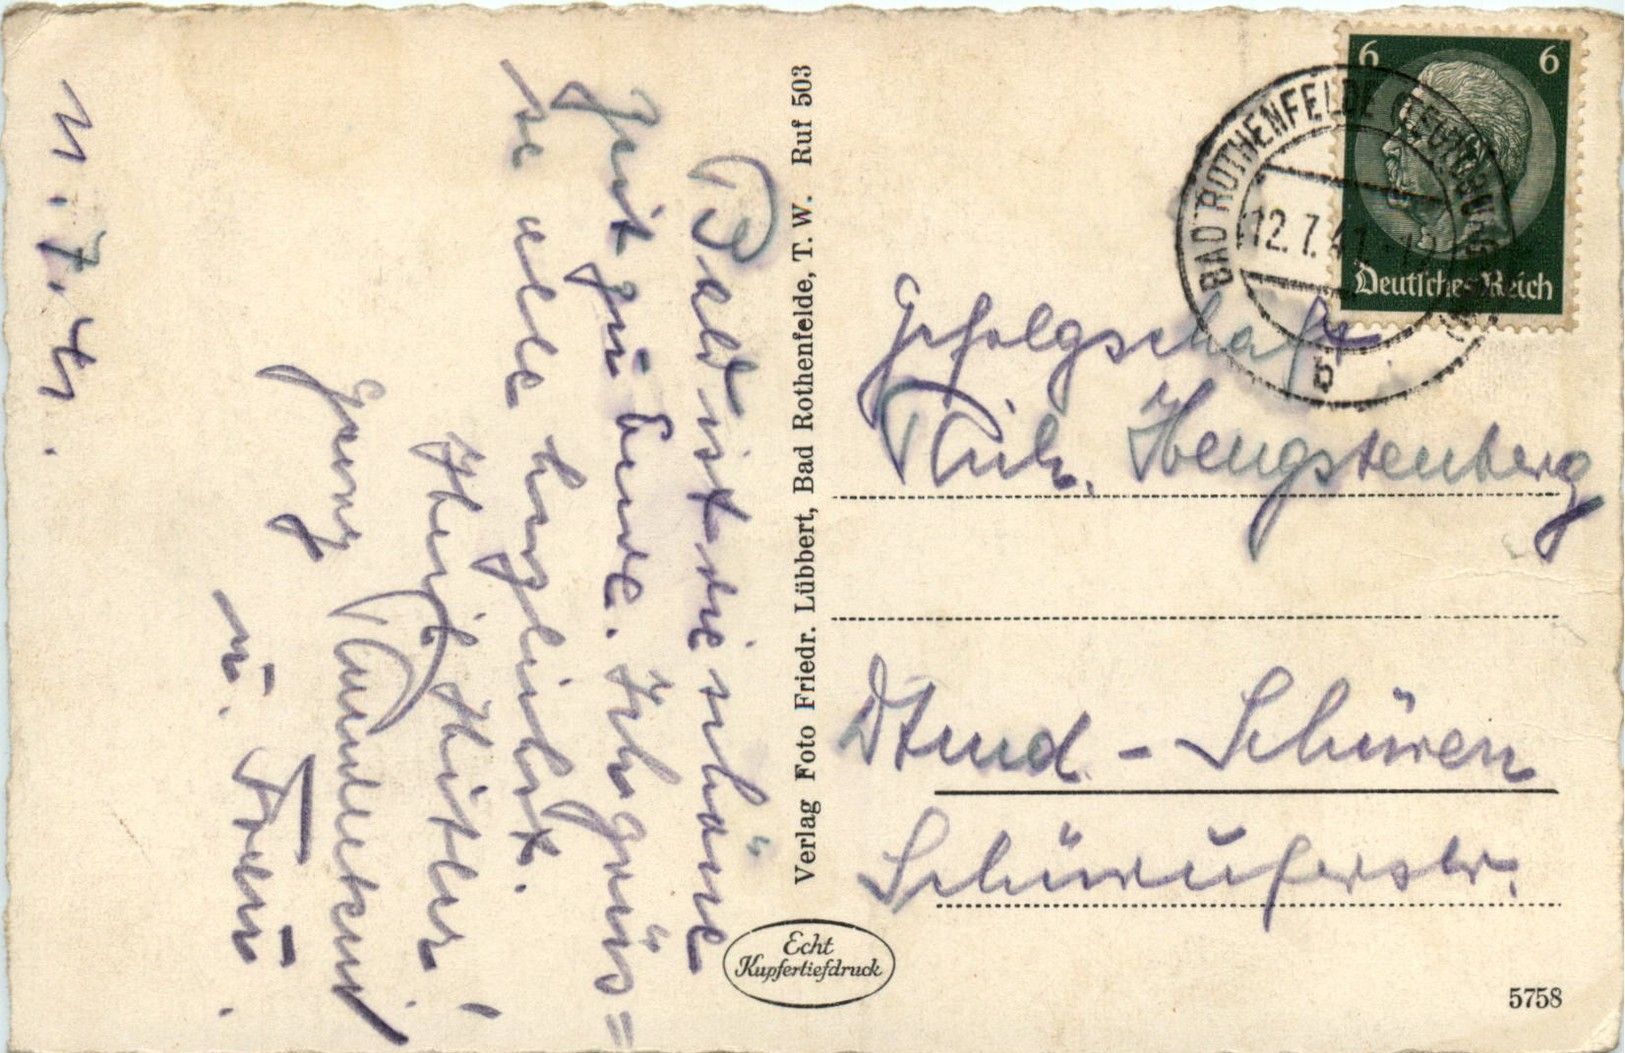 11.7.41.
Bald ist die schöne
Zeit zu Ende. Ich grüs=
se alle herzlichst.
Heil Hitler!
Georg
u. Frau.
Verlag Foto Friedr. Lübbert, Bad Rothenfelde, T. W. Ruf 503
Echt
Kupfertiefdruck
6 6
Deutsches Reich
BAD ROTHENFELDE (TEUTOBURG
12.7.41
b
Gefolgschaft
Wilh. Hengstenberg
Dtmd. - Schüren
Schüruferstr.
5758